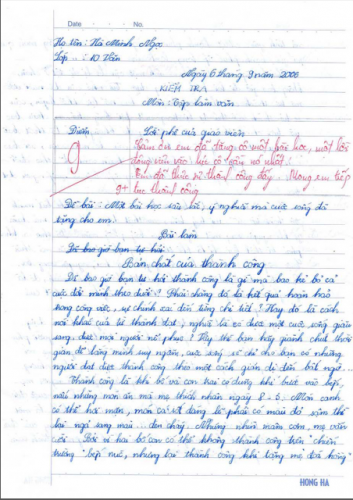 Date No.
Họ tên: Hà Minh Ngọc
Lớp: 10 Văn
Ngày 6 tháng 9 năm 2006
KIỂM TRA
Môn: Tập làm văn
Điểm Lời phê của giáo viên
9 Cảm ơn em đã tặng cô một bài học, một lời
động viên vào lúc cô cần nó nhất.
Em đã thức về thành công đấy. Mong em tiếp
9+ tục thành công
Đề bài: Một bài học sâu sắc, ý nghĩa mà cuộc sống đã
tặng cho em.
Bài làm
Đã bao giờ bạn tự hỏi:
Bản chất của thành công
Đã bao giờ bạn tự hỏi thành công là gì mà bao kẻ bỏ cả
cuộc đời mình theo đuổi? Phải chăng đó là kết quả hoàn hảo
trong công việc, sự chính xác đến từng chi tiết? Hay đó là cách
nói khác của từ thành đạt, nghĩa là có được một cuộc sống giàu
sang, được mọi người nể phục? Vậy thì bạn hãy giành chút thời
gian để lặng mình suy ngẫm, cuộc sống sẽ chỉ cho bạn có những
người đạt được thành công theo một cách giản dị đến bất ngờ...
Thành công là khi bố và con trai có dũng khí bước vào bếp,
nấu những món ăn mà mẹ thích nhân ngày 8-3. Món canh
có thể hơi mặn, món cá sốt đáng lẽ phải có màu đỏ sậm thì
lại ngả sang màu... đen cháy. Nhưng nhìn mâm cơm, mẹ vẫn
cười. Bởi vì hai bố con có thể không thành công trên "chiến
trường" bếp núc, nhưng lại thành công khi tặng mẹ "đoá hồng"
HONG HA